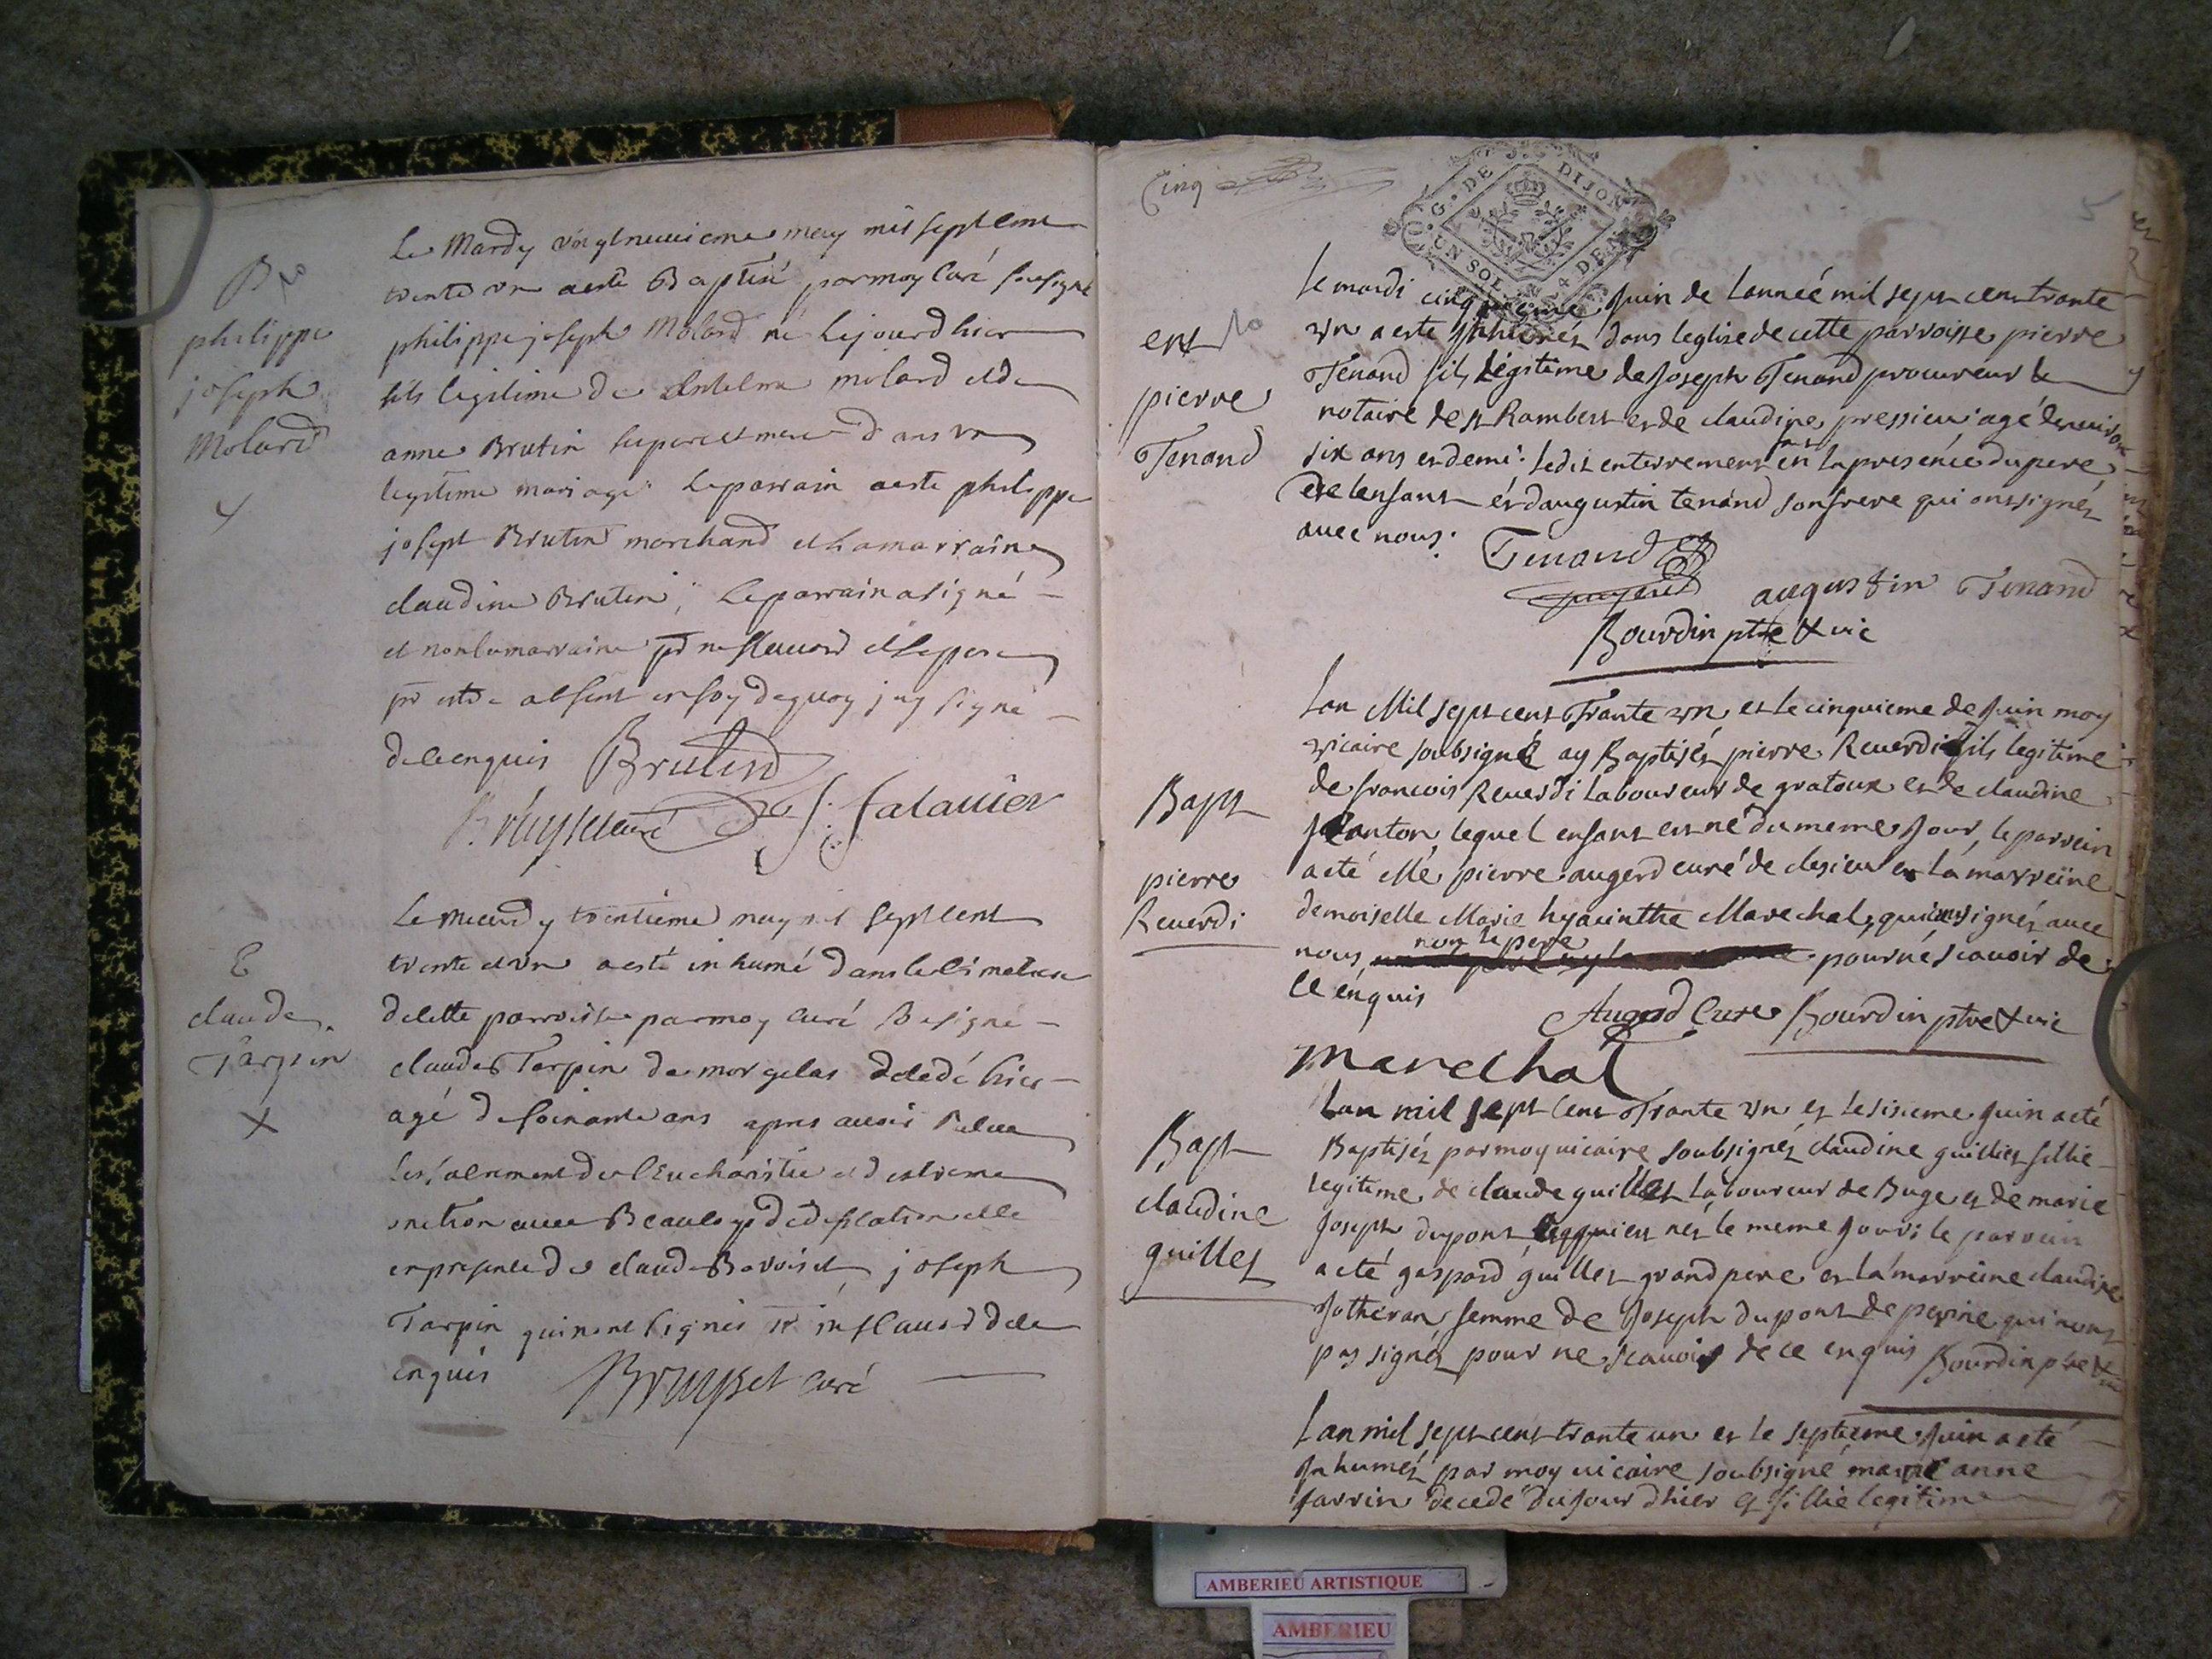 Le Mardy vingtneuvieme may mil sept cent
trente un a esté Baptisé par moy curé sousigné
philippe joseph Molard né le jourd hier
fils legitime de Antelme molard et de
anne Brutin le pere et mere d ans un
legitime mariage Le parrain a esté philippe
joseph Brutin marchand et la marraine
claudine Brutin, Le parrain a signé
et non la marraine pr ne scavoir et le pere
pr estre absent en foy de quoy j ay signé
de ce enquis Brutin
Bruyset curé
B
philippe
joseph
Molard
Le mecredy trentieme may mil sept cent
trente et un a esté inhumé dans le cimetiere
de cette parroisse par moy curé
claude Tarpin de morgelas decedé hier
agé de soixante ans apres avoir
les sacrement de l'Eucharistie et d extreme
onction avec Beaucoup d edification
en presence de claude joseph
Tarpin qui n ont signés pr ne scavoir de ce
enquis Bruyset curé
E
claude
Tarpin
X
Cinq
G. DE DIJON
UN SOL 4 DEN
5
le mardi cinquieme Juin de l'année mil sept cens trante
vn a esté inhumés dans leglise de cette parroisse pierre
Tenand fils légitime de Joseph Tenand procureur &
notaire de st Rambert et de claudine pressieu agé denviron
six ans et demi. ledit enterrement fait en la presénce du pere
de lenfant et daugustin tenand son frere qui ont signés
avec nous. Tenand
augustin Tenand
Bourdin ptre & vic
ent
pierre
Tenand
Lan Mil sept cent Trante vn et le cinquieme de Juin moy
vicaire soubsigné ay Baptisés pierre Reverdi fils legitime
de francois Reverdi laboureur de gratoux et de claudine
Janton, lequel enfant est né du meme Jour, le parrein
a eté Me pierre augerd curé de clesieu et la marreine
demoiselle Marie hyacinthe Marechal, qui ont signés avec
nous non le pere pour né scavoir de
ce enquis
Augerd Curé Bourdin ptre & vic
Marechal
Bapt
pierre
Reverdi
Lan mil sept Cent Trante vn et le sixieme Juin a eté
Baptisés par moy vicaire soubsignés claudine guillet fillie
legitime de claude guillet laboureur de Buge et de marie
Joseph dupont nes le meme Jour; le parrein
a eté gaspard guillet grand pere et la marreine claudine
Jotheran femme de Joseph dupont de qui nont
pas signés pour ne scavoir de ce enquis Bourdin ptre & vic
Bapt
claudine
guillet
Lan mil sept cent trante un et le septieme Juin a eté
Inhumés par moy vicaire soubsigné marie anne
Jarrin decedé du Jour dhier et fillie legitime
AMBERIEU ARTISTIQUE
AMBERIEU